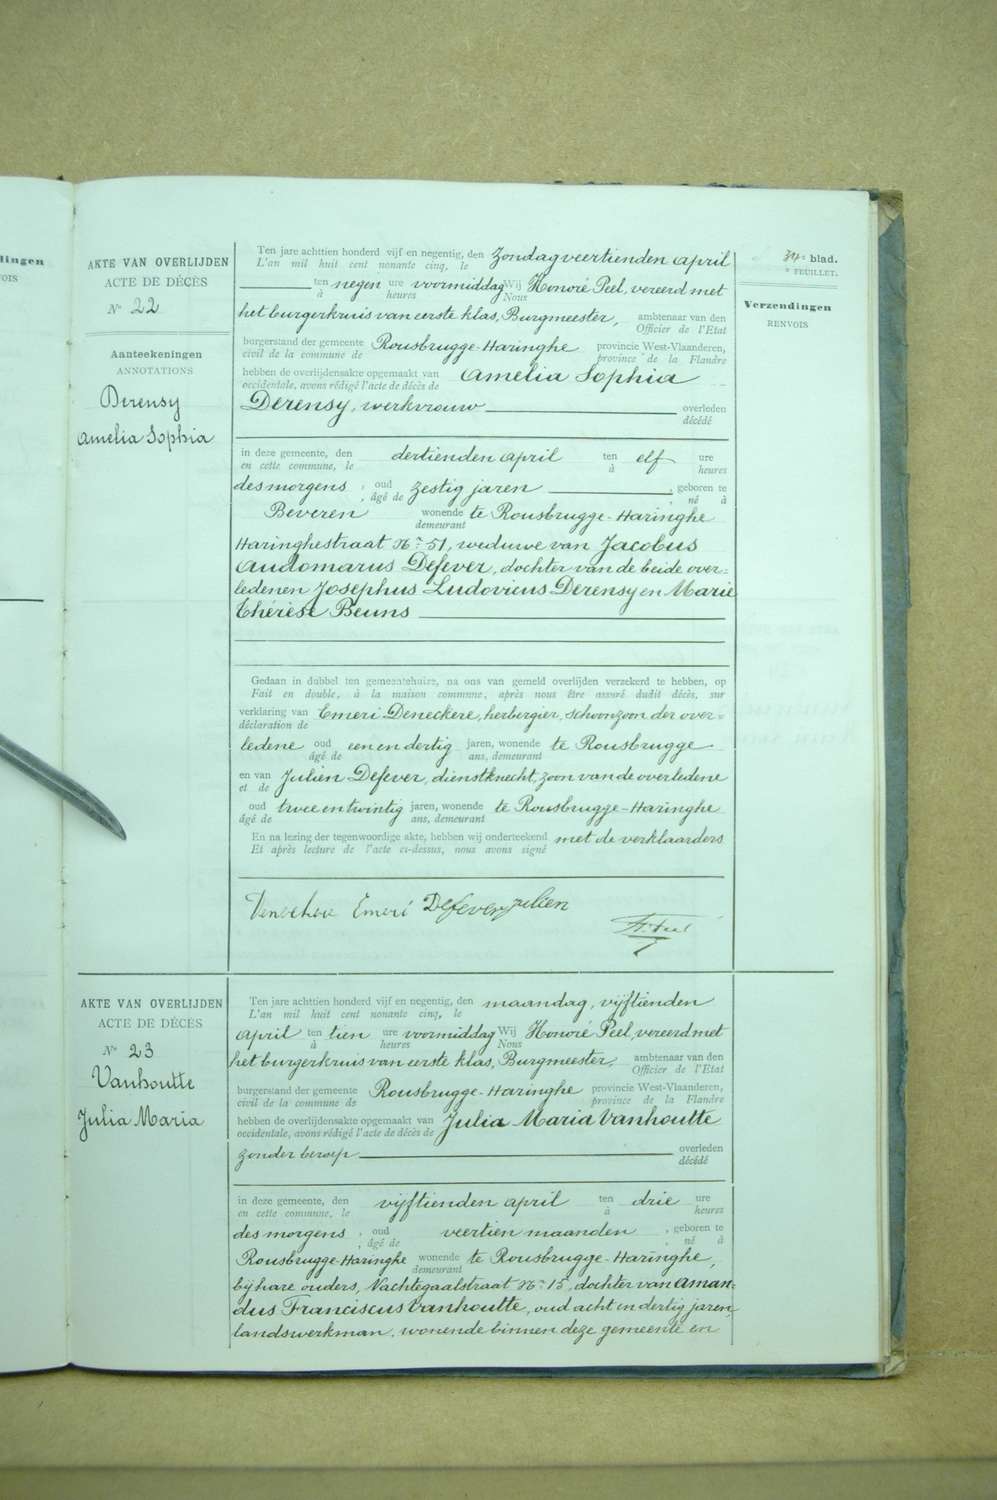 dingen
VOIS
34e blad.
e FEUILLET.
Verzendingen
RENVOIS
AKTE VAN OVERLIJDEN
ACTE DE DÉCÈS
No 22
Aanteekeningen
ANNOTATIONS
Derensy
Amelia Sophia
Ten jare achttien honderd vijf en negentig, den Zondag veertienden April
L'an mil huit cent nonante cinq, le
ten negen ure voormiddag Wij Honoré Peel, vereerd met
à heures Nous
het burgerkruis van eerste klas, Burgmeester, ambtenaar van den
Officier de l'Etat
burgerstand der gemeente Rousbrugge-Haringhe provincie West-Vlaanderen,
civil de la commune de province de la Flandre
hebben de overlijdensakte opgemaakt van Amelia Sophia
occidentale, avons rédigé l'acte de décès de
Derensy, werkvrouw overleden
décédé
in deze gemeente, den dertienden April ten elf ure
en cette commune, le à heures
des morgens, oud zestig jaren, geboren te
, âgé de , né à
Beveren wonende te Rousbrugge-Haringhe
demeurant
Haringhestraat No 51, weduwe van Jacobus
Audomarus Defever, dochter van de beide over=
ledenen Josephus Ludovicus Derensy en Marie
Thérèse Beuns
Gedaan in dubbel ten gemeentehuize, na ons van gemeld overlijden verzekerd te hebben, op
Fait en double, à la maison commune, après nous être assuré dudit décès, sur
verklaring van Emeri Deneckere, herbergier, schoonzoon der over=
déclaration de
ledene oud een en dertig jaren, wonende te Rousbrugge
âgé de ans, demeurant
en van Julien Defever, dienstknecht, zoon van de overledene
et de
oud twee en twintig jaren, wonende te Rousbrugge-Haringhe
âgé de ans, demeurant
En na lezing der tegenwoordige akte, hebben wij onderteekend met de verklaarders
Et après lecture de l'acte ci-dessus, nous avons signé
Emeri Defever Julien
H. Peel
AKTE VAN OVERLIJDEN
ACTE DE DÉCÈS
No 23
Vanhoutte
Julia Maria
Ten jare achttien honderd vijf en negentig, den maandag, vijftienden
L'an mil huit cent nonante cinq, le
April ten tien ure voormiddag Wij Honoré Peel, vereerd met
à heures Nous
het burgerkruis van eerste klas, Burgmeester, ambtenaar van den
Officier de l'Etat
burgerstand der gemeente Rousbrugge-Haringhe provincie West-Vlaanderen,
civil de la commune de province de la Flandre
hebben de overlijdensakte opgemaakt van Julia Maria Vanhoutte
occidentale, avons rédigé l'acte de décès de
zonder beroep overleden
décédé
in deze gemeente, den vijftienden April ten drie ure
en cette commune, le à heures
des morgens, oud veertien maanden, geboren te
, âgé de , né à
Rousbrugge-Haringhe wonende te Rousbrugge-Haringhe,
demeurant
bij hare ouders, Nachtegaalstraat No 15, dochter van Aman=
dus Franciscus Vanhoutte, oud acht en dertig jaren,
landswerkman, wonende binnen deze gemeente en